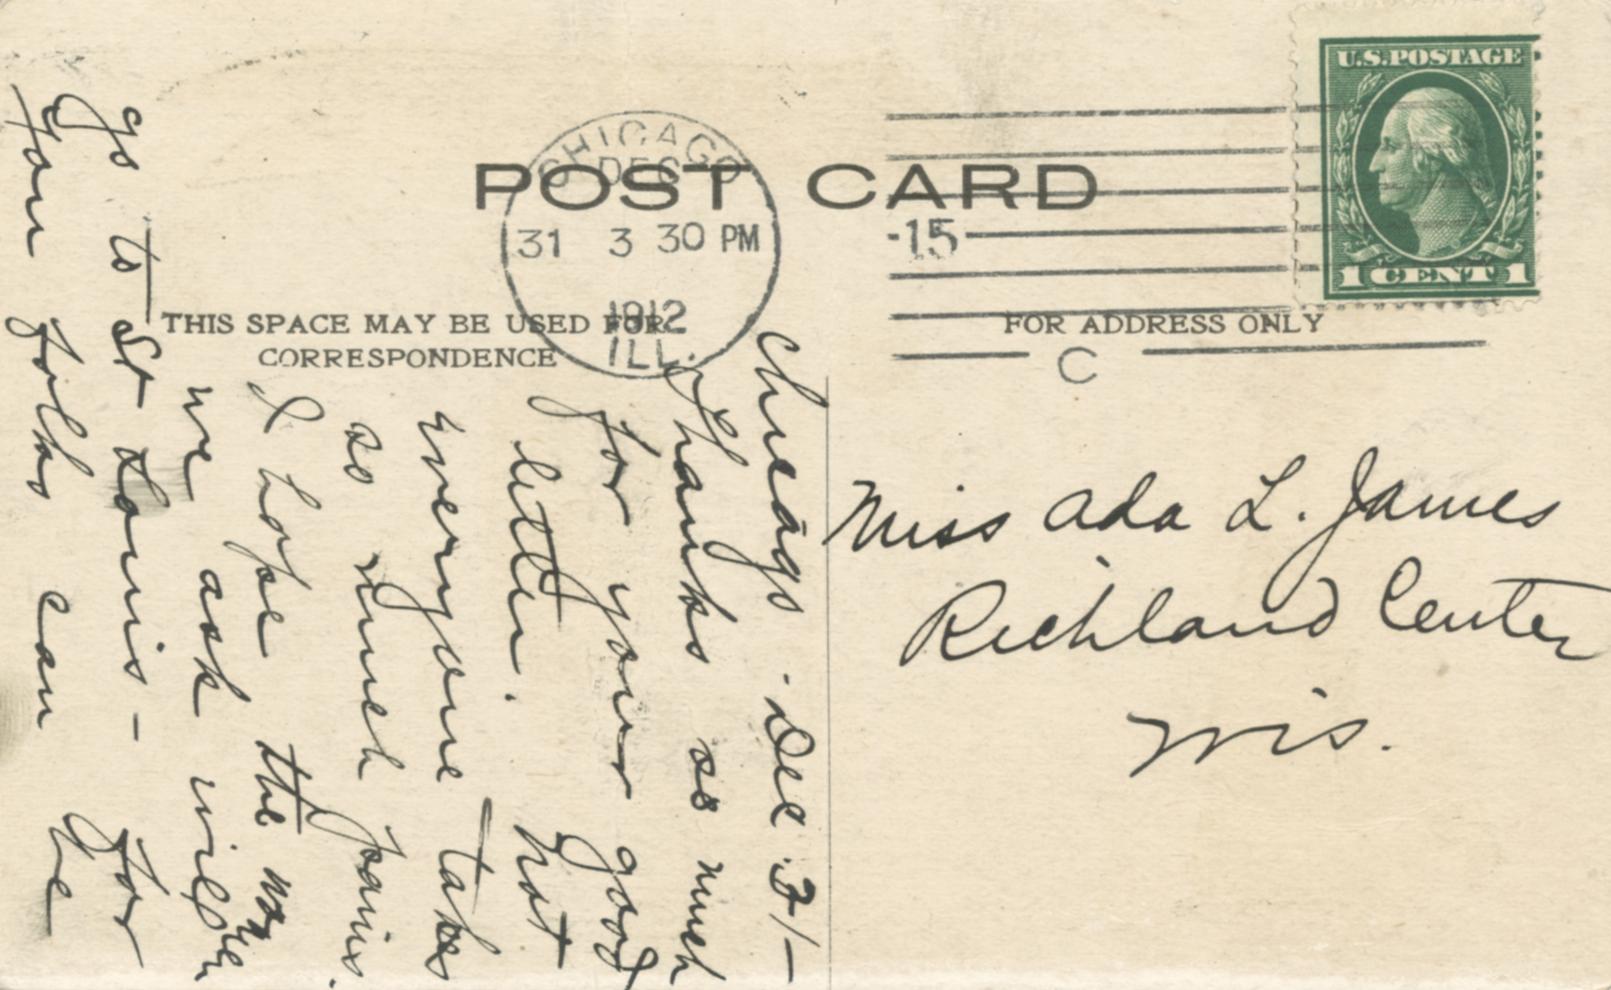 POST CARD
CHICAGO
DEC
31 3 30 PM
1912
ILL.
-15-
C
U.S. POSTAGE
1 CENT 1
THIS SPACE MAY BE USED FOR
CORRESPONDENCE
FOR ADDRESS ONLY
Miss Ada L. James
Richland Center
Wis.
Chicago - Dec. 31 -
Thanks so much
for your good
letter. Not
everyone takes
so much pains.
I hope the
we ask will
go to St Louis - for
you folks can be